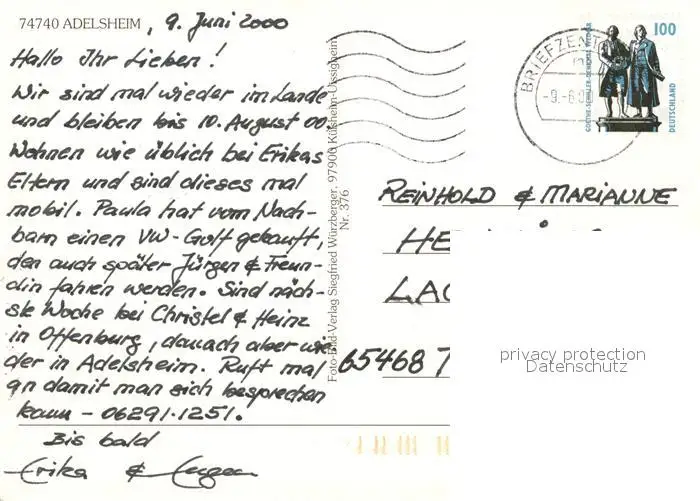 74740 ADELSHEIM, 9. Juni 2000
Hallo Ihr Lieben!
Wir sind mal wieder im Lande
und bleiben bis 10. August 00.
Wohnen wie üblich bei Erikas
Eltern und sind dieses mal
mobil. Paula hat vom Nach-
barn einen VW-Golf gekauft,
den auch später Jürgen & Freun-
din fahren werden. Sind näch-
ste Woche bei Christel & Heinz
in Offenburg, danach aber wie-
der in Adelsheim. Ruft mal
an damit man sich besprechen
kann - 06291-1251.
Bis bald
Erika & Eugen
Foto-Bild-Verlag Siegfried Würzberger, 97900 Külsheim-Uissigheim
Nr. 376
BRIEFZENT
-9.-6.
GOETHE-SCHILLER-DENKMAL WEIMAR
100
DEUTSCHLAND
REINHOLD & MARIANNE
HE
LAC
65468 T
privacy protection
Datenschutz